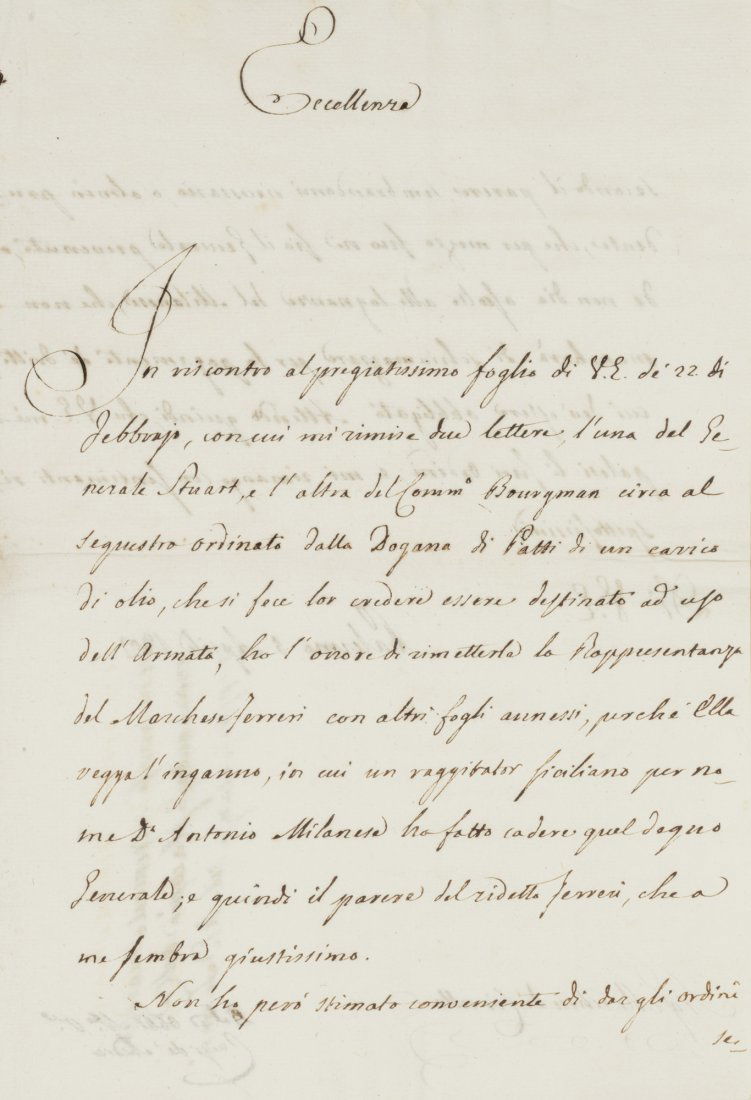 Eccellenza
In riscontro al pregiatissimo foglio di V.E. de' 22. di
Febbrajo, con cui mi rimise due lettere, l'una del Ge-
nerale Stuart, e l'altra del Comm.º Bourgman circa al
sequestro ordinato dalla Dogana di Patti di un carico
di olio, che si fece lor credere essere destinato ad uso
dell'Armata, ho l'onore di rimetterla la Rappresentanza
del Marchese Ferreri con altri fogli annessi, perché Ella
vegga l'inganno, in cui un raggirator Siciliano per no-
me Dn Antonio Milanese ha fatto cadere quel degno
Generale; e quindi il parere del ridetto Ferreri, che a
me sembra giustissimo.
Non ho però stimato conveniente di dargli ordine
se-